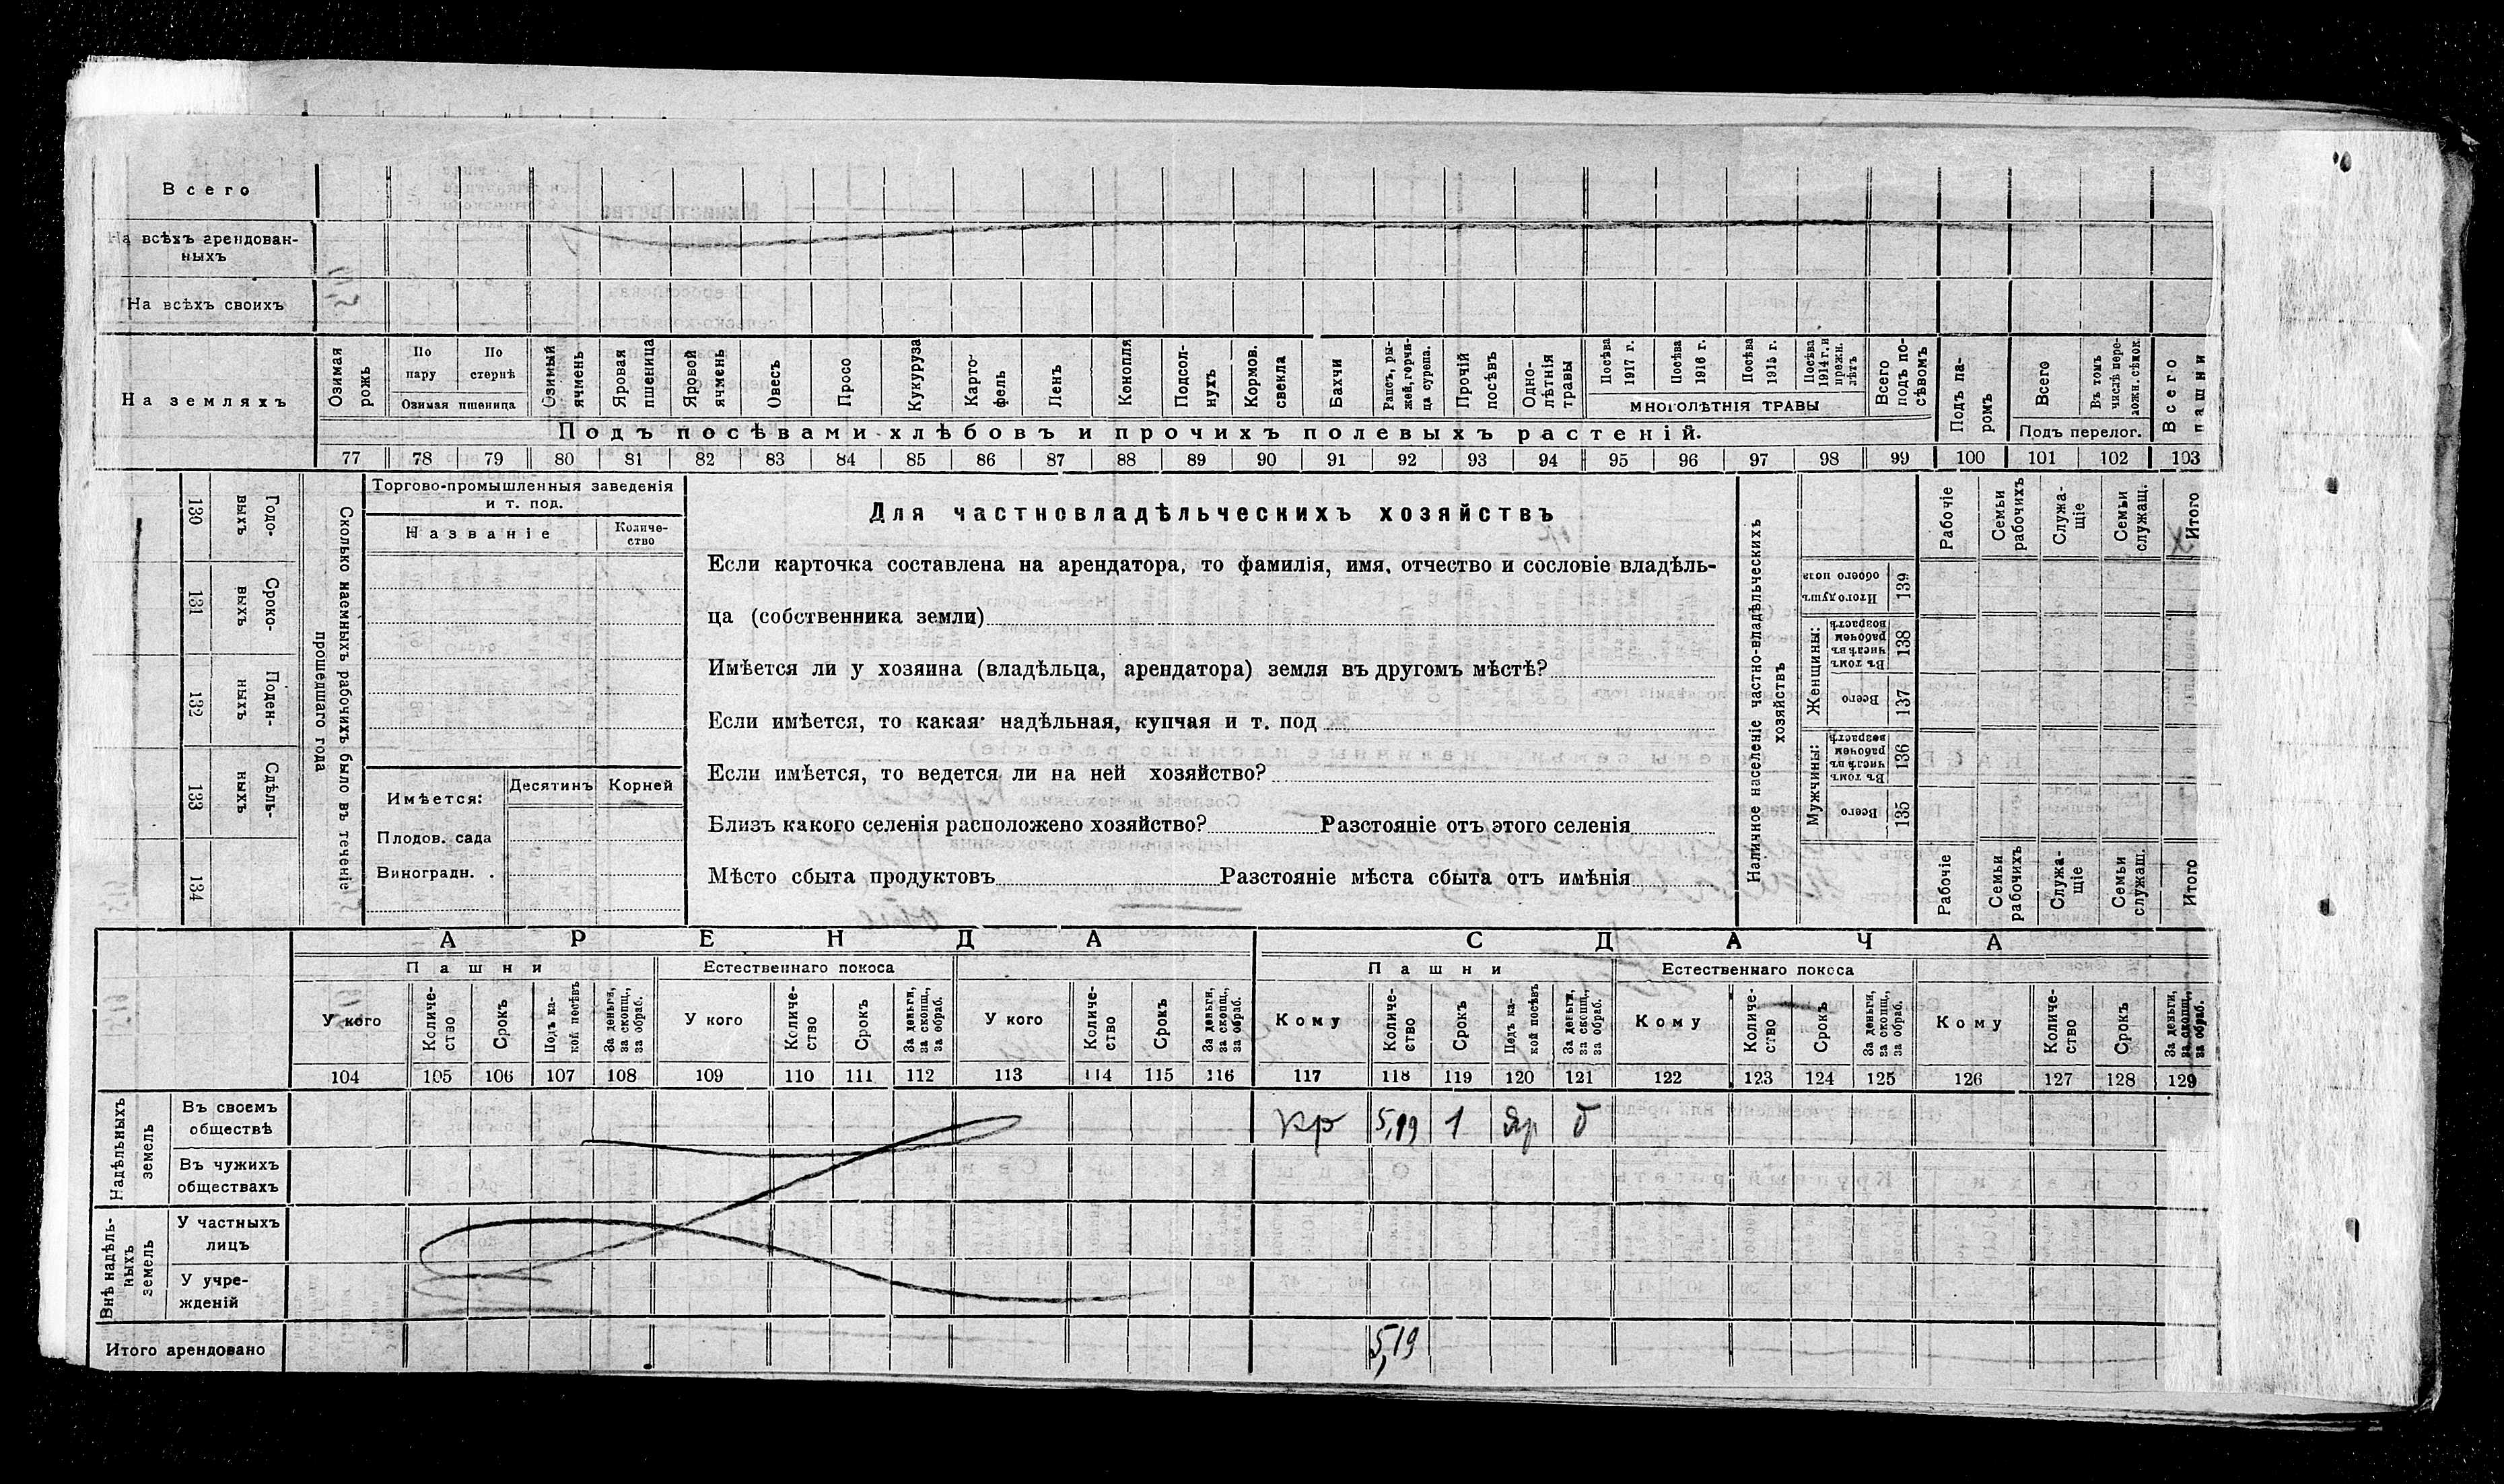 Всего
На всѣхъ арендован-
ныхъ
На всѣхъ своихъ
На земляхъ
Озимая рожь
По пару
По стернѣ
Озимая пшеница
Озимый ячмень
Яровая пшеница
Яровой ячмень
Овесъ
Просо
Кукуруза
Карто-
фель
Ленъ
Конопля
Подсол-
нухъ
Кормов. свекла
Бахчи
Рапсъ, ры-
жей, горчи-
ца сурепа.
Прочій посѣвъ
Одно-
лѣтнія травы
Посѣва 1917 г.
Посѣва 1916 г.
Посѣва 1915 г.
Посѣва 1914 г. и прежн. лѣтъ
МНОГОЛѢТНІЯ ТРАВЫ
Всего подъ по-
сѣвомъ
Подъ па-
ромъ
Всего
Въ томъ числѣ пере-
Подъ перелог.
Всего пашни
Подъ посѣвами хлѣбовъ и прочихъ полевыхъ растеній.
77 78 79 80 81 82 83 84 85 86 87 88 89 90 91 92 93 94 95 96 97 98 99 100 101 102 103
Сколько наемныхъ рабочихъ было въ теченіе
прошедшаго года
130 Годо-
выхъ
131 Сроко-
выхъ
132 Поден-
ныхъ
133 Сдѣль-
ныхъ
134
Торгово-промышленныя заведенія
и т. под.
Названіе
Количе-
ство
Имѣется:
Десятинъ
Корней
Плодов. сада
Виноградн. .
Для частновладѣльческихъ хозяйствъ
Если карточка составлена на арендатора, то фамилія, имя, отчество и сословіе владѣль-
ца (собственника земли)
Имѣется ли у хозяина (владѣльца, арендатора) земля въ другомъ мѣстѣ?
Если имѣется, то какая· надѣльная, купчая и т. под
Если имѣется, то ведется ли на ней хозяйство?
Близъ какого селенія расположено хозяйство? Разстояніе отъ этого селенія
Мѣсто сбыта продуктовъ Разстояніе мѣста сбыта отъ имѣнія
Наличное населеніе частно-владѣльческихъ
хозяйствъ
Рабочіе
Семьи рабочихъ
Служа-
щіе
Семьи служащ.
Итого
Итого душъ обоего пола 139
Женщины:
Въ томъ числѣ въ рабочемъ возрастѣ 138
Всего 137
Мужчины:
Въ томъ числѣ въ рабочемъ возрастѣ 136
Всего 135
Рабочіе
Семьи рабочихъ
Служа-
щіе
Семьи служащ.
Итого
АРЕНДА
СДАЧА
Пашни
Естественнаго покоса
Пашни
Естественнаго покоса
У кого
Количе-
ство
Срокъ
Подъ ка-
кой посѣвъ
За деньги, за скопщ., за обраб.
У кого
Количе-
ство
Срокъ
За деньги, за скопщ., за обраб.
У кого
Количе-
ство
Срокъ
За деньги, за скопщ., за обраб.
Кому
Количе-
ство
Срокъ
Подъ ка-
кой посѣвъ
За деньги, за скопщ., за обраб.
Кому
Количе-
ство
Срокъ
За деньги, за скопщ., за обраб.
Кому
Количе-
ство
Срокъ
За деньги, за скопщ., за обраб.
104 105 106 107 108 109 110 111 112 113 114 115 116 117 118 119 120 121 122 123 124 125 126 127 128 129
Надѣльныхъ земель
Въ своемъ
обществѣ
Кр 5,19 1 Яр
Въ чужихъ
обществахъ
Внѣ надѣль-
ныхъ земель
У частныхъ
лицъ
У учре-
жденій
Итого арендовано
5,19